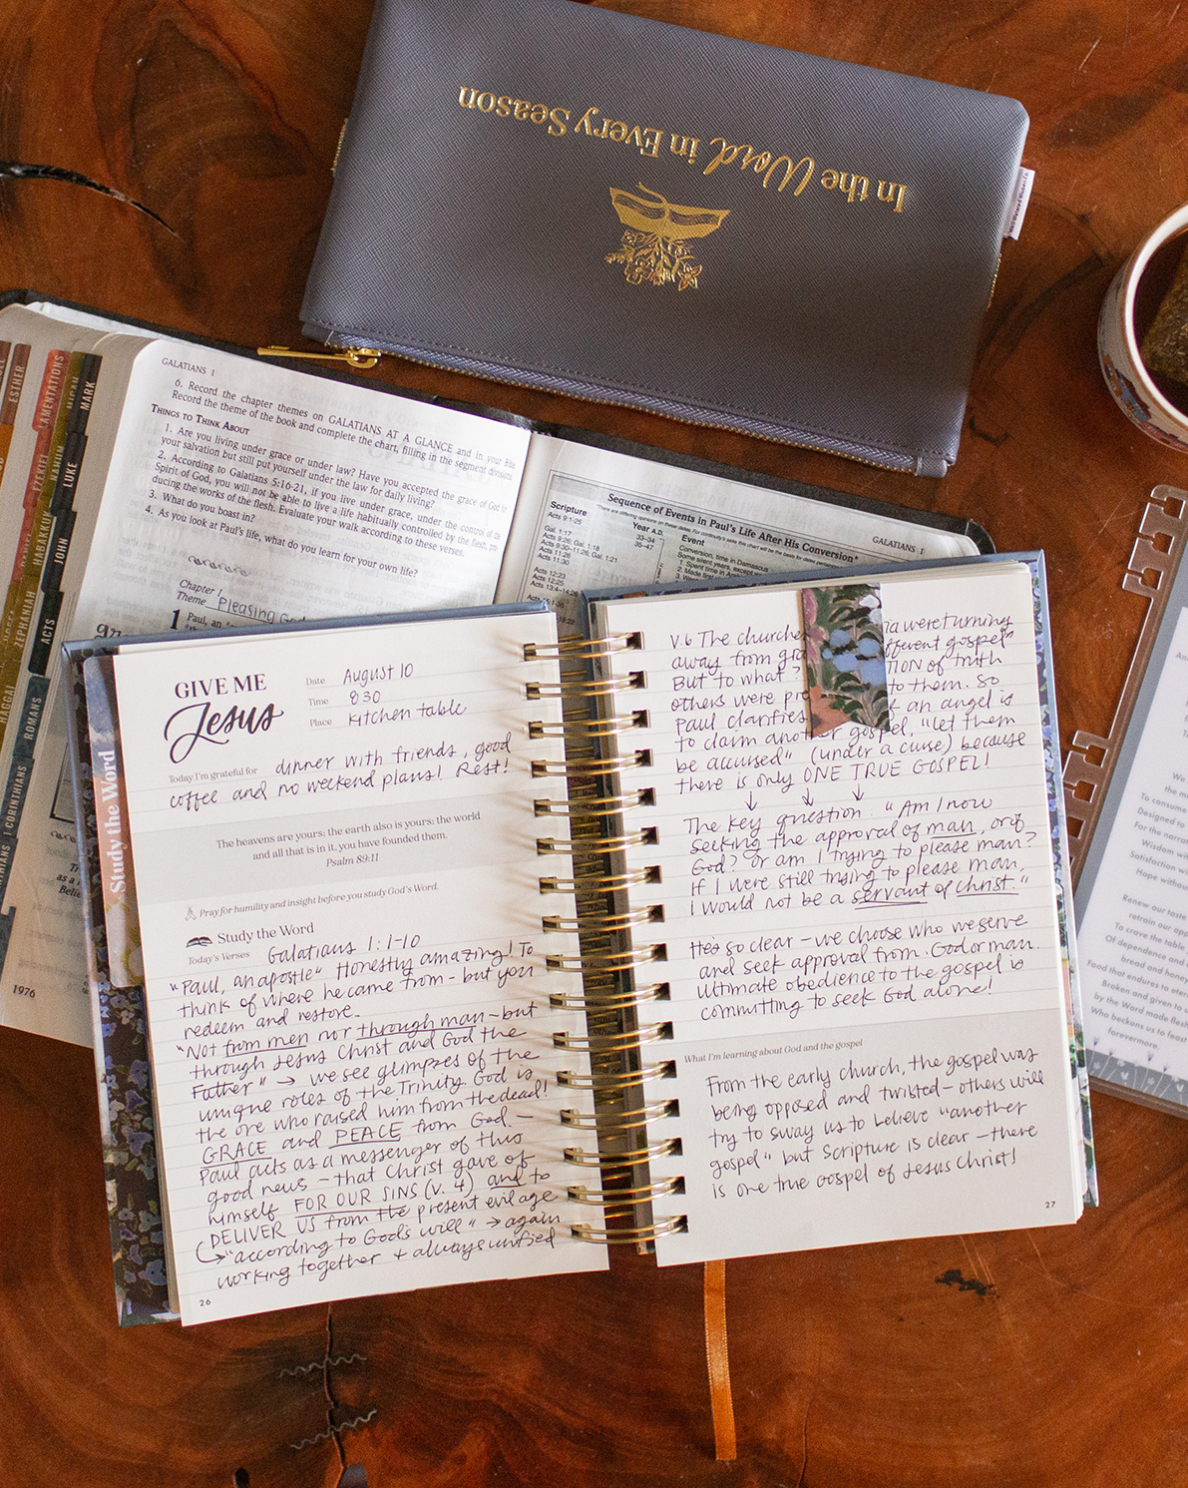 In the Word in Every Season
ESTHER
LAMENTATIONS
EZEKIEL
MICAH
NAHUM
HABAKKUK
ZEPHANIAH
HAGGAI
MARK
LUKE
JOHN
ACTS
ROMANS
1 CORINTHIANS
1976
GALATIANS 1
6. Record the chapter themes on GALATIANS AT A GLANCE and in your Bible
Record the theme of the book and complete the chart, filling in the segment division
THINGS TO THINK ABOUT
1. Are you living under grace or under law? Have you accepted the grace of God in
your salvation but still put yourself under the law for daily living?
2. According to Galatians 5:16-21, if you live under grace, under the control of the
Spirit of God, you will not be able to live a life habitually controlled by the flesh, pro
ducing the works of the flesh. Evaluate your walk according to these verses.
3. What do you boast in?
4. As you look at Paul's life, what do you learn for your own life?
Chapter 1
Theme Pleasing God
1 Paul, an
GALATIANS 1
Sequence of Events in Paul's Life After His Conversion*
Scripture
Year A.D.
Event
Acts 9:1-25
33-34
Conversion, time in Damascus
Gal. 1:17
35-47
Some silent years, except
Acts 9:26; Gal. 1:18
1. Spent time in
Acts 9:30-11:26; Gal. 1:21
2. Made first
Acts 11:26
Acts 11:30
Acts 12:23
Acts 12:25
Study the Word
GIVE ME
Jesus
Date August 10
Time 830
Place Kitchen table
Today I'm grateful for dinner with friends, good
coffee and no weekend plans! Rest!
The heavens are yours; the earth also is yours; the world
and all that is in it, you have founded them.
Psalm 89:11
Pray for humility and insight before you study God's Word.
Study the Word
Today's Verses Galatians 1:1-10
"Paul, an apostle" Honestly amazing! To
think of where he came from - but you
redeem and restore.
"Not from men nor through man - but
through Jesus Christ and God the
Father" → we see glimpses of the
unique roles of the Trinity. God is
the one who raised him from the dead!
GRACE and PEACE from God. -
Paul acts as a messenger of this
good news - that Christ gave of
himself FOR OUR SINS (v. 4) and to
DELIVER US from the present evil age
↳ "according to God's will" → again
working together + always unified
26
V.6 The churches ia were turning
away from gra fferent gospel"
But to what? TION of truth
others were pre to them. So
Paul clarifies an angel is
to claim another gospel, "let them
be accused" (under a curse) because
there is only ONE TRUE GOSPEL!
↓ ↓ ↓
The key question "Am I now
seeking the approval of man, or of
God? Or am I trying to please man?
If I were still trying to please man,
I would not be a servant of Christ."
Hes so clear - we choose who we serve
and seek approval from. God or man.
ultimate obedience to the gospel is
committing to seek God alone!
What I'm learning about God and the gospel
From the early church, the gospel was
being opposed and twisted - others will
try to sway us to believe "another
gospel" but Scripture is clear - there
is one true gospel of Jesus Christ!
27
To consume
Designed to
For the narrat
Wisdom wit
Satisfaction wi
Hope without
Renew our taste
retrain our ap
To crave the table
Of dependence and
bread and honey
Food that endures to eter
Broken and given to
by the Word made flesh
Who beckons us to feast
forevermore.